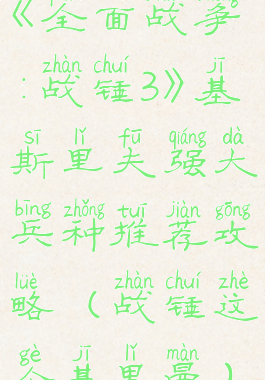 《全面战争
zhàn chuí jī
：战锤3》基
sī lǐ fū qiáng dà
斯里夫强大
bīng zhǒng tuī jiàn gōng
兵种推荐攻
lüè zhàn chuí zhè
略（战锤这
gè jī lǐ màn
个基里曼）